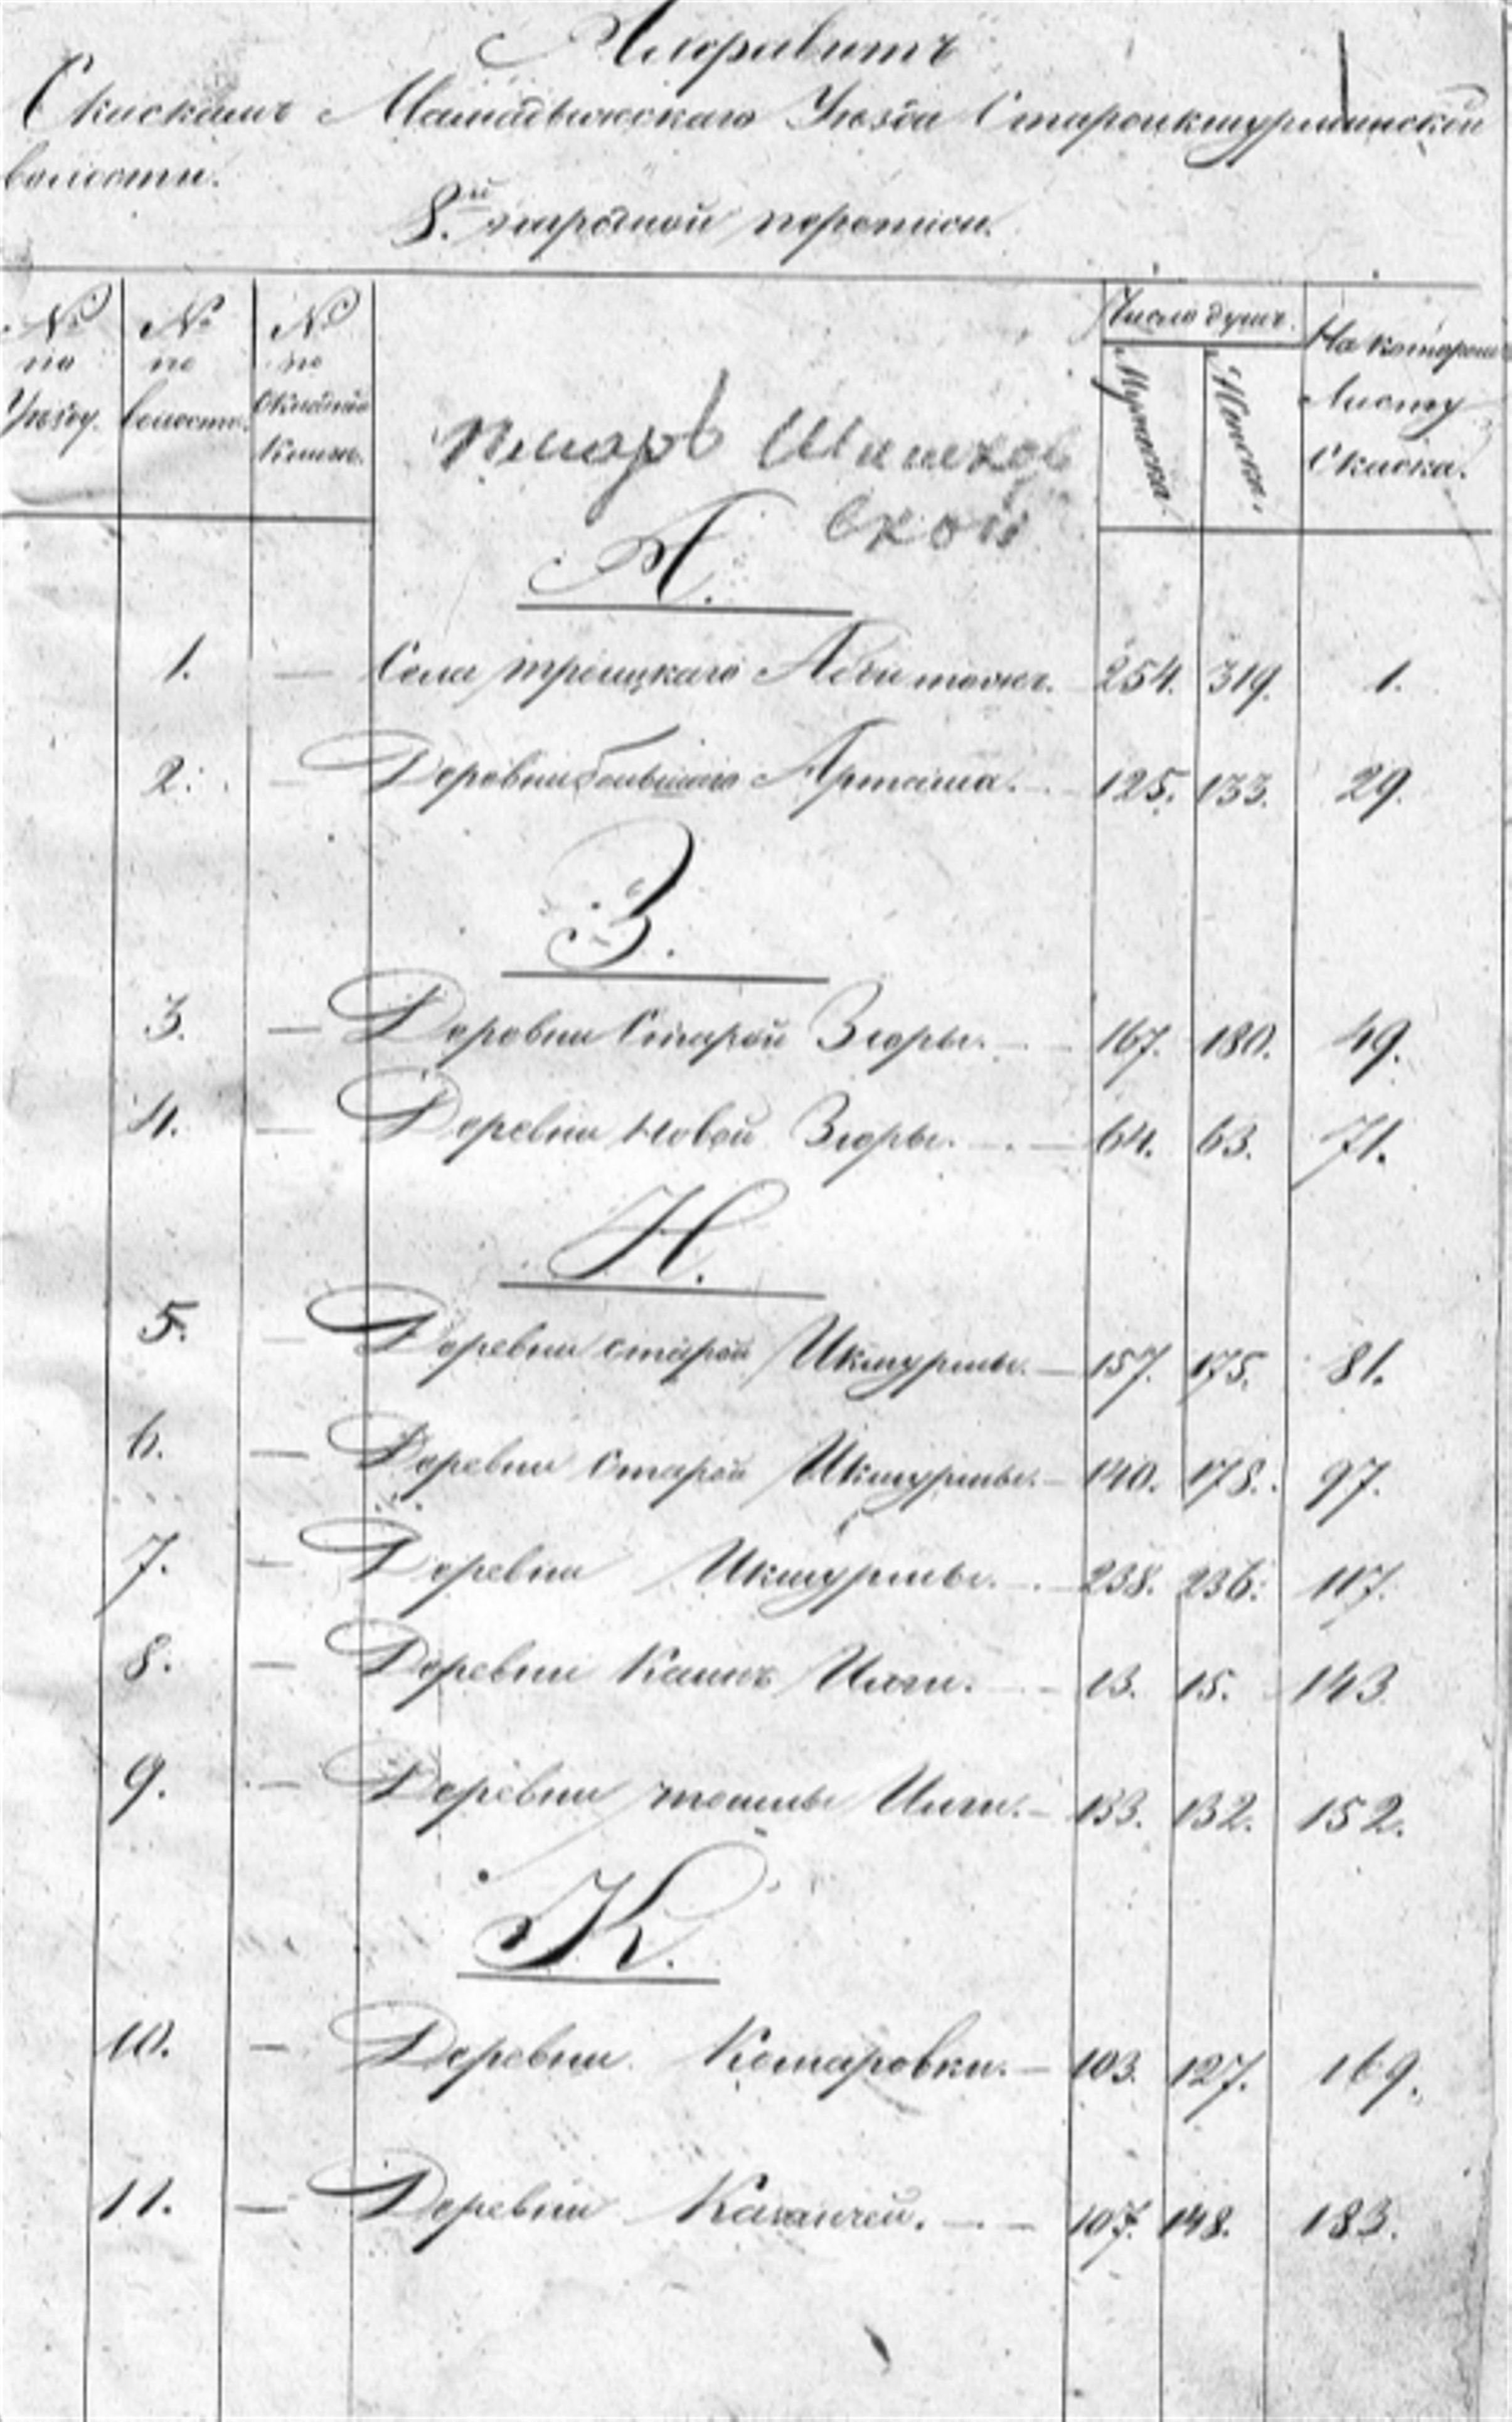 Алфавитъ
Скискамъ Мамадышскаго Уѣзда Староиктурминской
волости.
8.й народной переписи.
№ по Уѣзду.
№ по волости.
№ по Окладной Книги.
Число душъ.
Мужеска.
Женска.
На которомъ Листу Скаска.
писарь Шишков
ской
А.
1. — Села троицкаго 254. 319. 1.
2. — Деревни большаго Арташа. 125. 133. 29.
З.
3. — Деревни Старой Зюры. 167. 180. 49.
4. — Деревни Новой Зюры. 64. 63. 71.
И.
5. — Деревни старой Иктурмы. 157. 175. 81.
6. — Деревни старой Иктурмы. 140. 178. 97.
7. — Деревни Иктурмы. 238. 236. 117.
8. — Деревни Камъ Илги. 13. 15. 143.
9. — Деревни Илги. 133. 132. 152.
К.
10. — Деревни Комаровки. 103. 127. 169.
11. — Деревни Казанчей. 107. 148. 183.